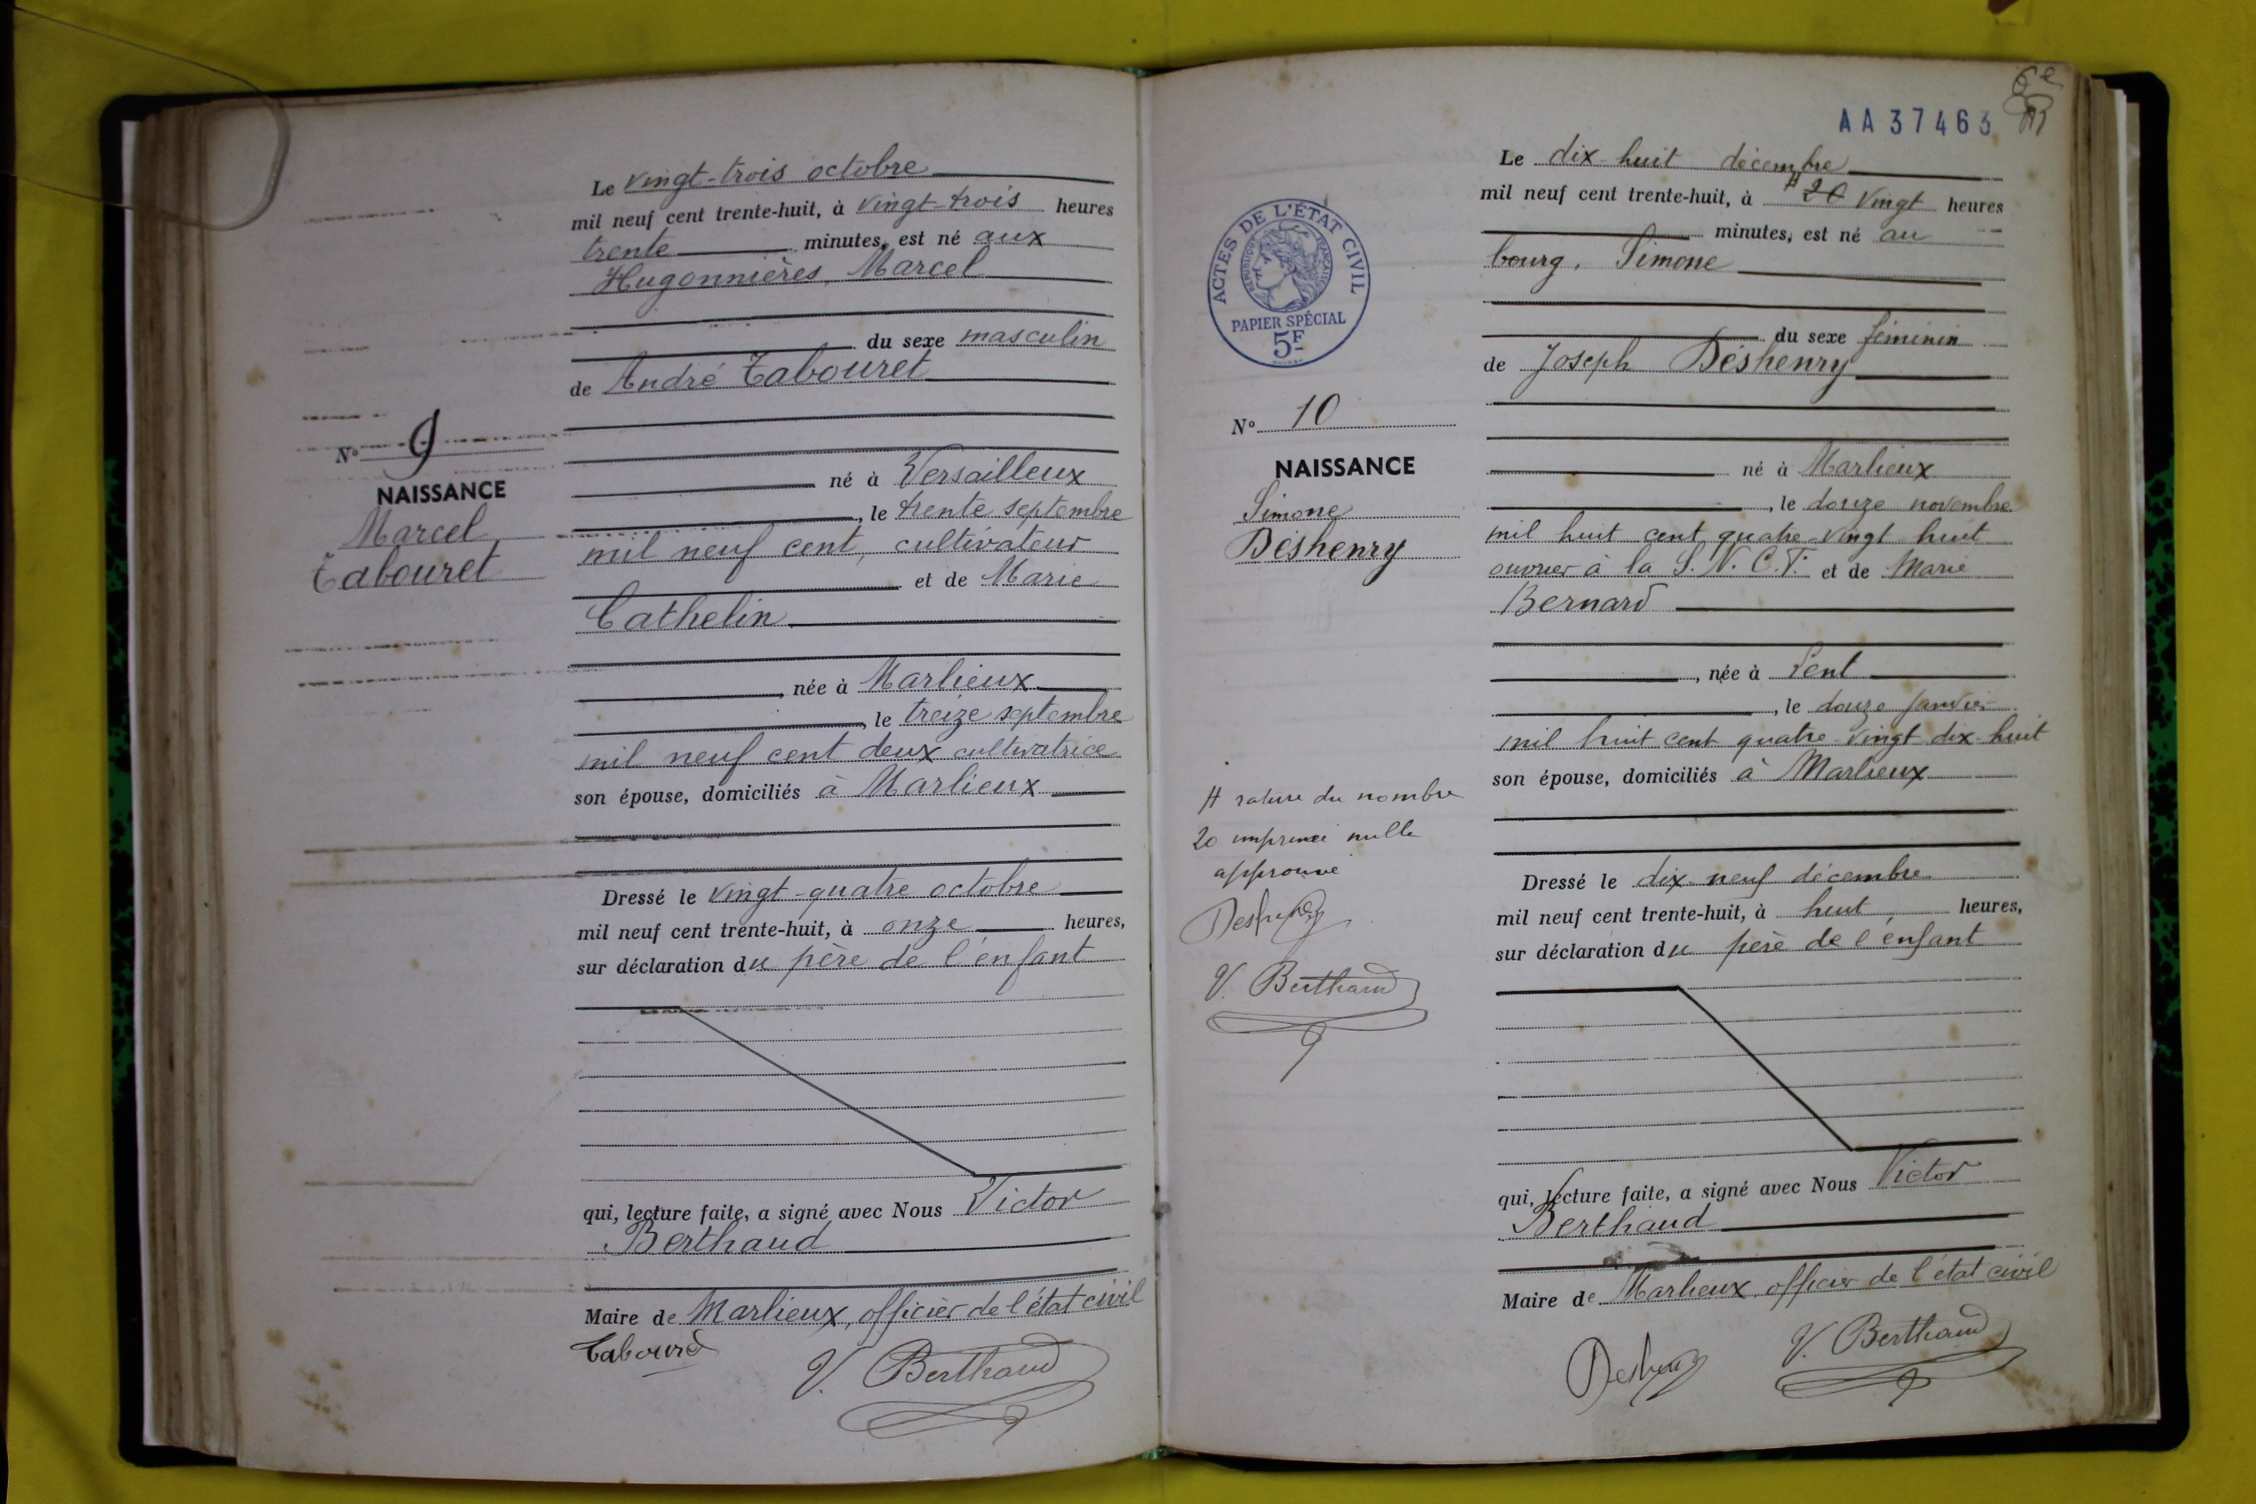 Le vingt-trois octobre
mil neuf cent trente-huit, à vingt-trois heures
trente minutes, est né aux
Hugonnières, Marcel
du sexe masculin
de André Tabouret
né à Versailleux
, le trente septembre
mil neuf cent, cultivateur
et de Marie
Cathelin
, née à Marlieux
, le treize septembre
mil neuf cent deux cultivatrice
son épouse, domiciliés à Marlieux
Dressé le vingt-quatre octobre
mil neuf cent trente-huit, à onze heures,
sur déclaration du père de l'enfant
qui, lecture faite, a signé avec Nous Victor
Berthaud
Maire de Marlieux, officier de l'état civil
V. Berthaud
No 9
NAISSANCE
Marcel
Tabouret
AA37463
6e
ACTES DE L'ÉTAT CIVIL
RÉPUBLIQUE FRANÇAISE
PAPIER SPÉCIAL
5F
No 10
NAISSANCE
Simone
Déshenry
# rature du nombre
20 imprimé nulle
approuvé
Deshenry
V. Berthaud
Le dix-huit décembre
mil neuf cent trente-huit, à # 20 vingt heures
minutes, est né au
bourg, Simone
du sexe féminin
de Joseph Déshenry
né à Marlieux
, le douze novembre
mil huit cent quatre-vingt huit
ouvrier à la S.N.C.F. et de Marie
Bernard
, née à Lent
, le douze janvier
mil huit cent quatre-vingt dix-huit
son épouse, domiciliés à Marlieux
Dressé le dix-neuf décembre
mil neuf cent trente-huit, à huit heures,
sur déclaration du père de l'enfant
qui, lecture faite, a signé avec Nous Victor
Berthaud
Maire de Marlieux, officier de l'état civil
Deshenry V. Berthaud